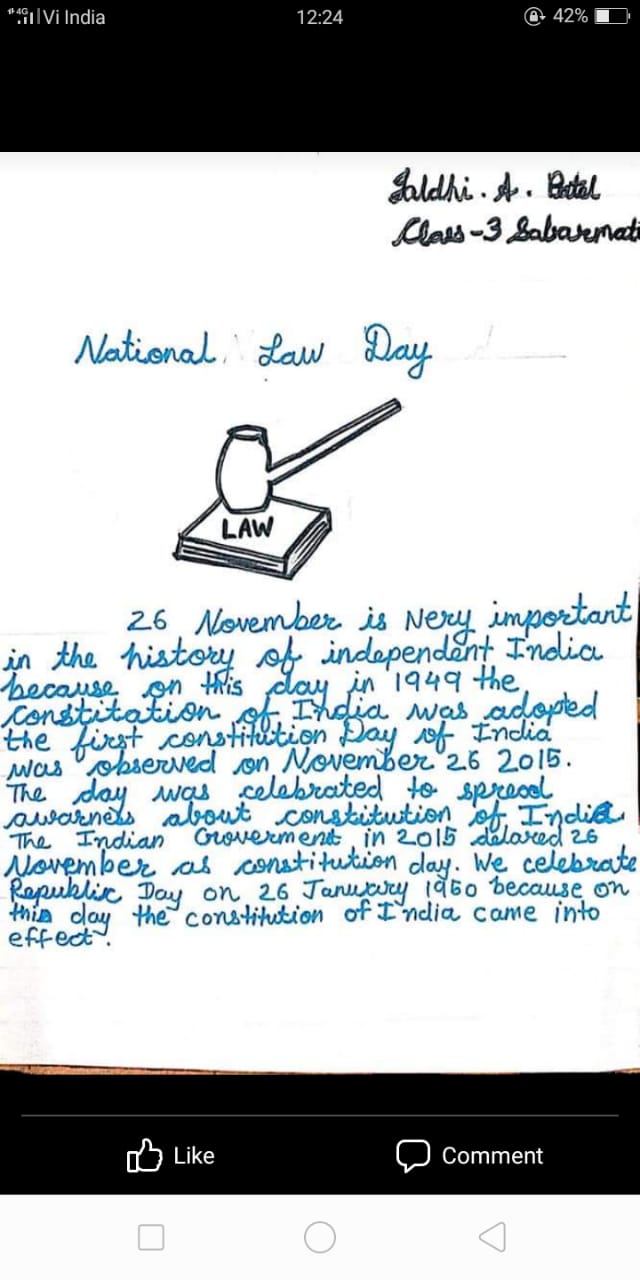 4G Vi India 12:24 42%
Jaldhi. A. Patel
Class-3 Sabarmati
National Law Day
LAW
26 November is Very important
in the history of independent India
because on this day in 1949 the
constitation of India was adopted
the first constitution Day of India
was observed on November 26 2015.
The day was celebrated to spread
awarness about constitution of India
The Indian Goverment in 2015 delared 26
November as constitution day. We celebrate
Republic Day on 26 Januxary 1950 because on
this day the constitution of India came into
effect.
Like Comment